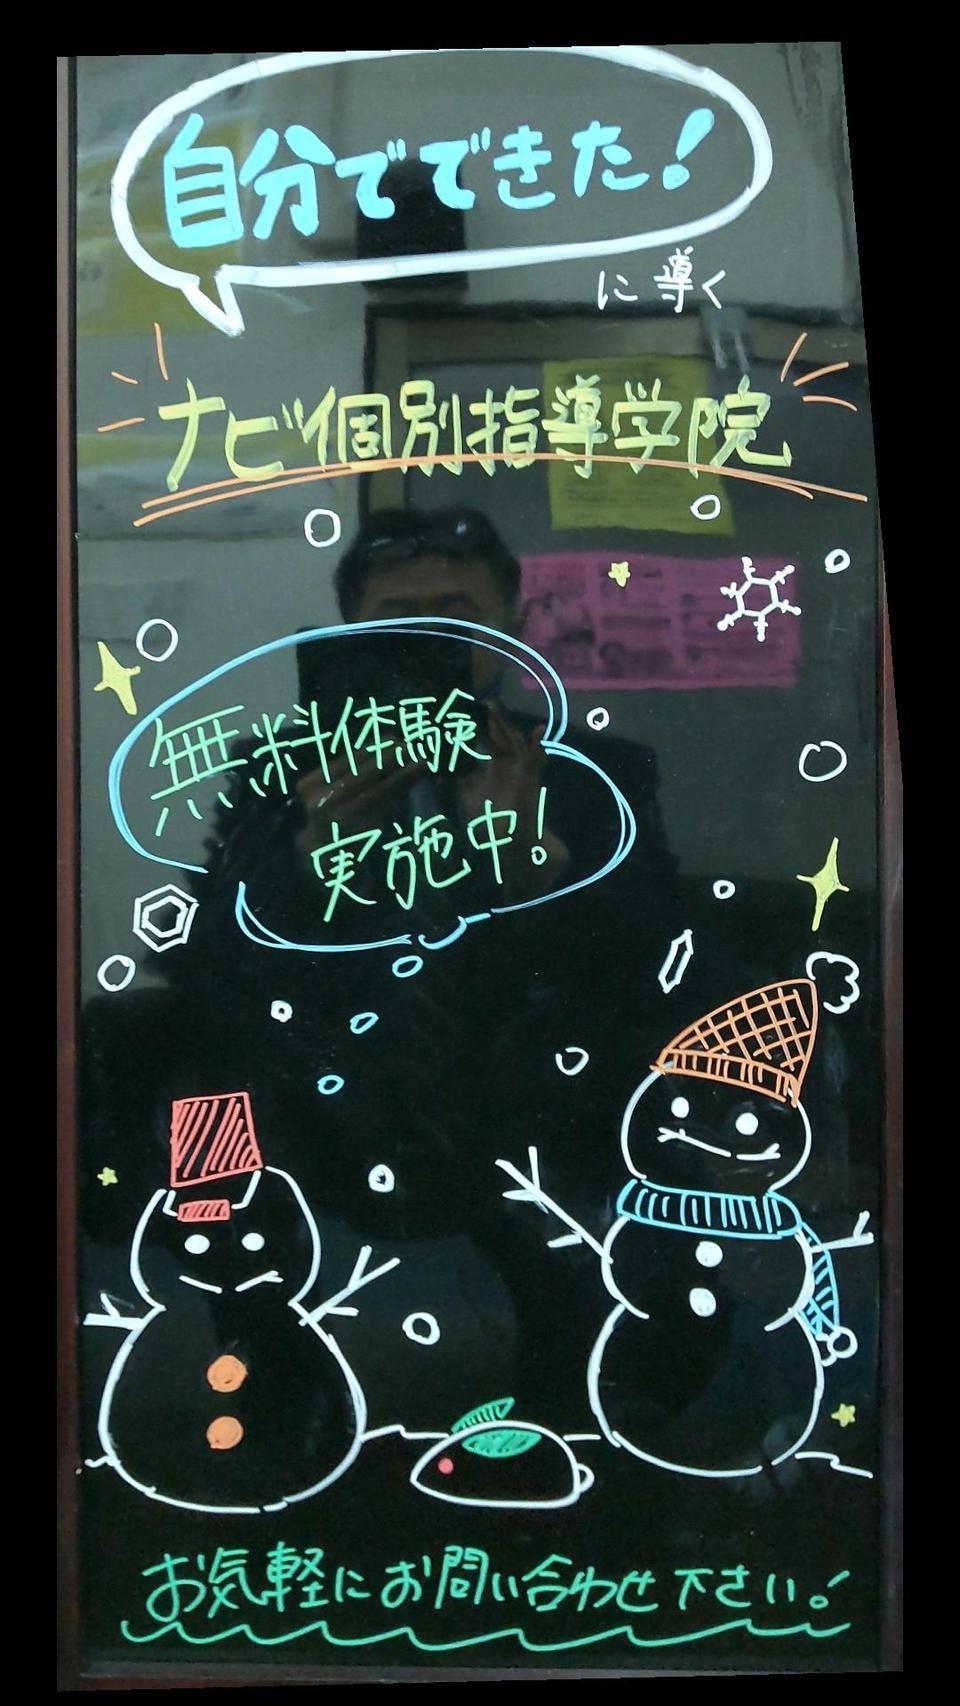 自分でできた!
に導く
ナビ個別指導学院
無料体験
実施中!
お気軽にお問い合わせ下さい!